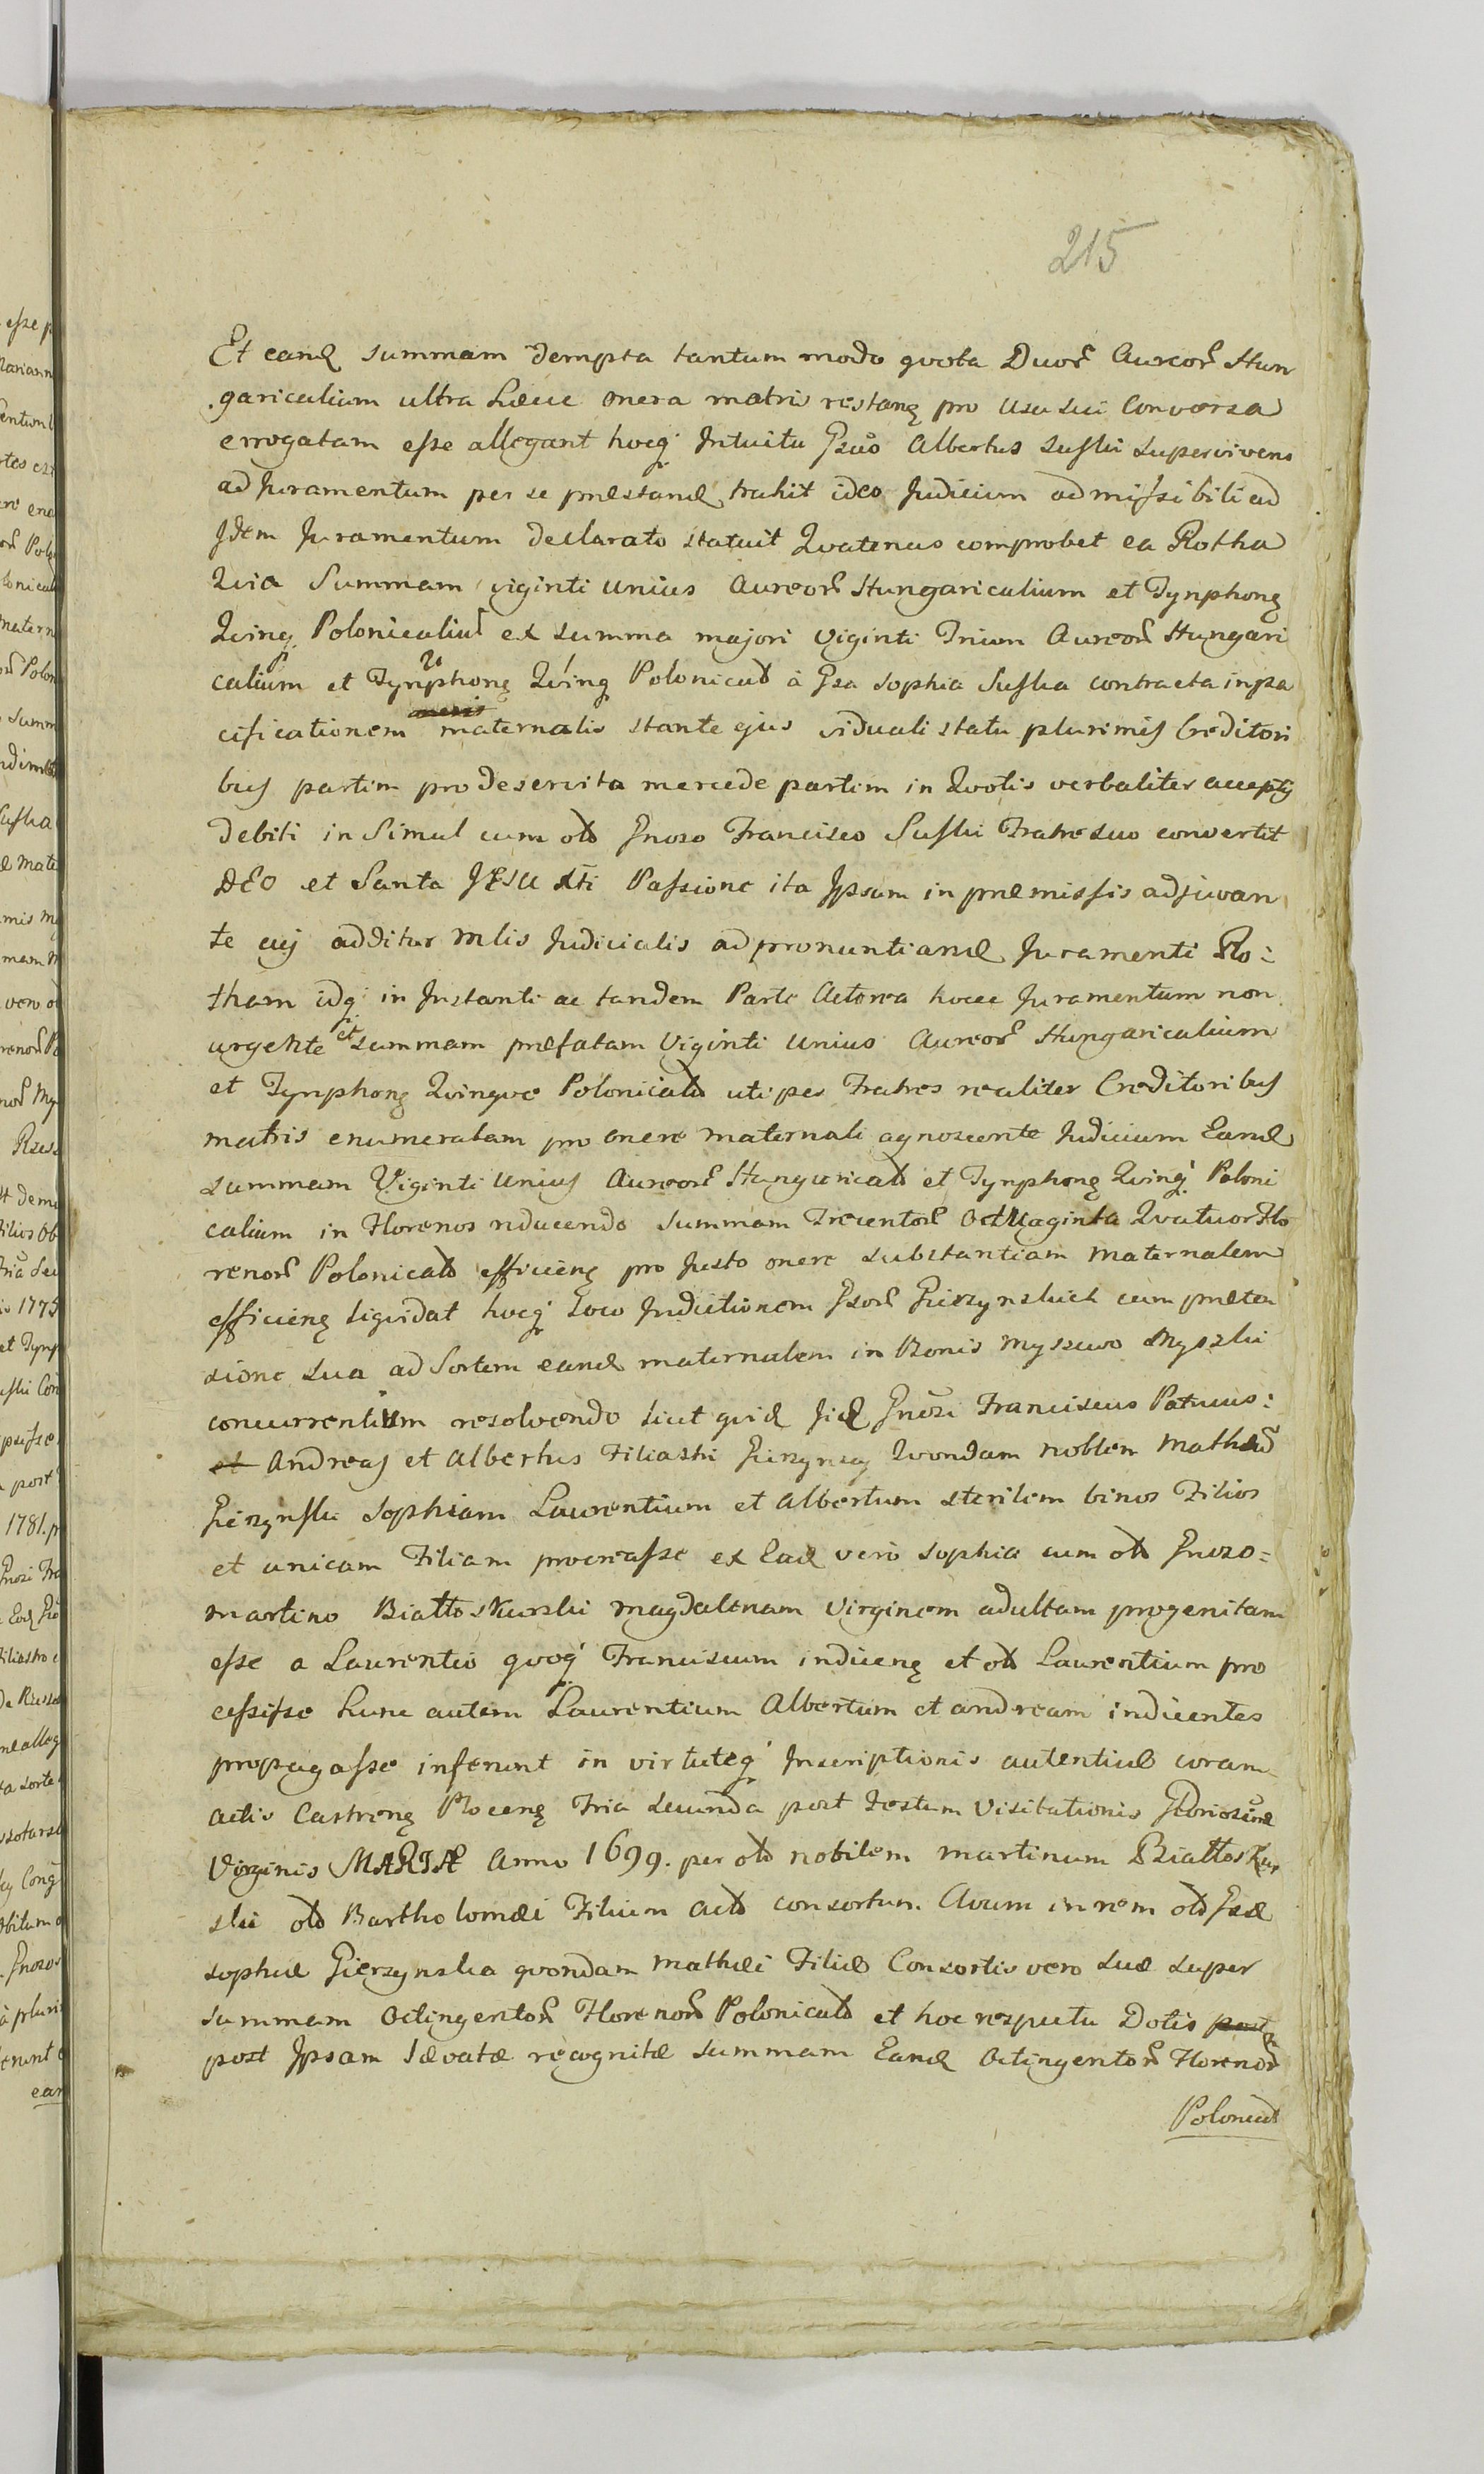 215
Et eand summam dempta tantum modo qvota Duor Aureor Hun
garicalium ultra hæcce onera matris restanę pro usu sui Conversa
errogatam esse allegant hocq Intuitu Gsus Albertus Suski supervivens
ad Juramentum per se præstand trahit ideo Judicium admissibili ad
Idem Juramentum declarato statuit Qvatenus comprobet ea Rotha
Qvia Summam viginti unius Aureor Hungaricalium et Tynphonę
Qvinq Polonicaliu ex summa majori viginti Trium Aureor Hungari
calium et Tynphonę Qvinq Polonical à Gsa Sophia Suska contracta in pa
cificationem maternalis stante ejus viduali statu plurimis Creditori
bus partim pro deservita mercede partim in Qvotis verbaliter accepti
debiti in Simul cum olt Gnoso Francisco Suski Fratre suo convertit
DEO et Santa JESU Xti Passione ita Ipsum in præmissis adjuvan
te cuj additur Mlis Judicialis ad pronuntiand Juramenti Ro:
tham idq in Instanti ac tandem Parte Actorea hocce Juramentum non
urgente et summam præfatam Viginti unius Aureor Hungaricalium
et Tynphonę Qvinqve Polonical uti per Fratres realiter Creditoribus
matris enumeratam pro onere maternali agnoscente Judicium Eand
summam Viginti unius Aureor Hungarical et Tynphonę Qvinq Poloni
calium in Florenos reducendo summam Trecentor Octuaginta Qvatuor Flo
renor Polonical efficienę pro Justo onere substantiam maternalem
efficienę liqvidat hocq Loco Inductionem Gsor Gierzynskich cum præten
sione sua ad Sortem eand maternalem in Bonis Myszewo Myszki
concurrentium resolvendo sicut qvid Iid Gnosi Franciscus Patruus:
et Andreas et Albertus Filiastri Gierzynscy Qvondam Noblem Mathæu
Gierzynski Sophiam Laurentium et Albertum sterilem binos Filios
et unicam Filiam procreasse ex Ead verò Sophia cum olt Gnoso=
Martino Białłoskurski Magdalenam Virginem adultam progenitam
esse a Laurentio qvoq Franciscum indicenę et olt Laurentium pro
cessisse hunc autem Laurentium Albertum et Andream indicentes
propagasse inferunt in virtuteq Inscriptionis autenticæ coram
Actis Castrenę Plocenę Fria Secunda post Festum Visitationis Gloriosimæ
Virginis MARIÆ Anno 1699. per olt nobilem Martinum Białłoskur
ski olt Bartholomæi Filium Act consortum. Avum in rem olt Gsæ
Sophiæ Gierzynska qvondam Mathæi Filiæ Consortis vero suæ super
summam Octingentor Florenor Polonical et hoc respectu Dotis post
post Ipsam Levatæ recognitæ summam Eand Octingentor Florenor
Polonical